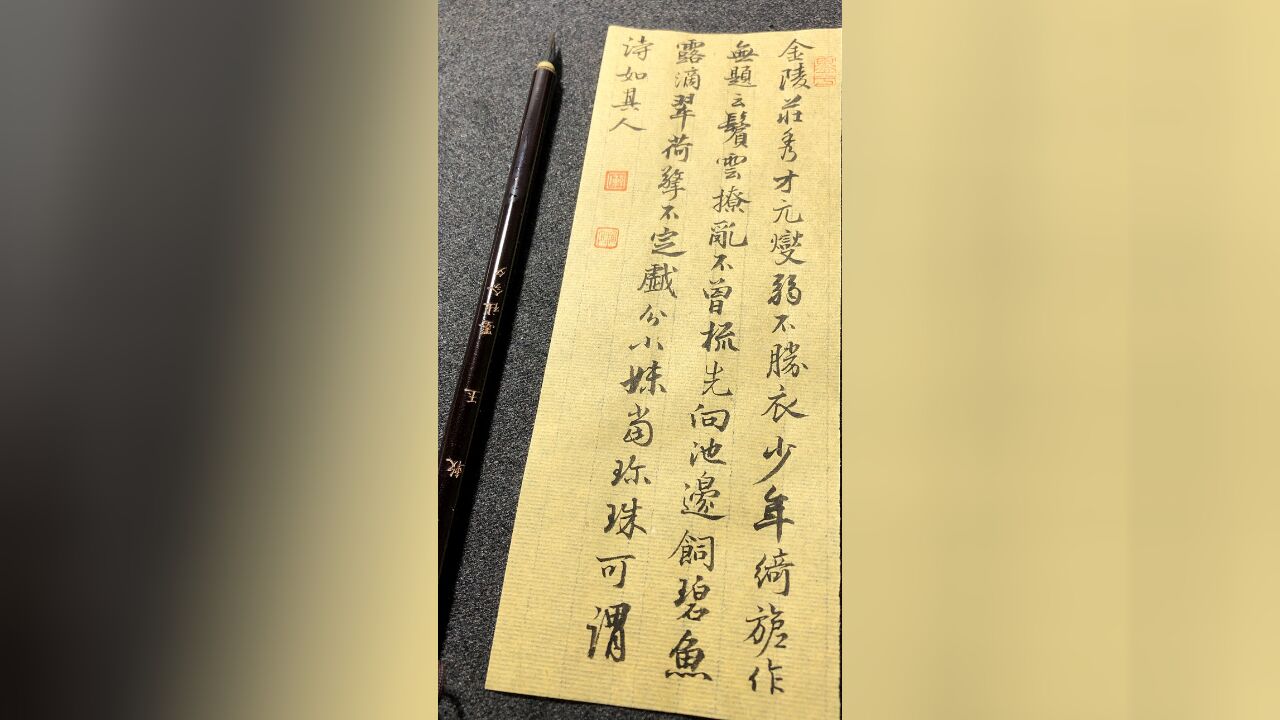 金陵莊秀才元燮弱不勝衣少年綺旎作
無題云鬢雲撩亂不曾梳先向池邊飼碧魚
露滴翠荷擎不定戲分小妹當珎珠可謂
诗如其人